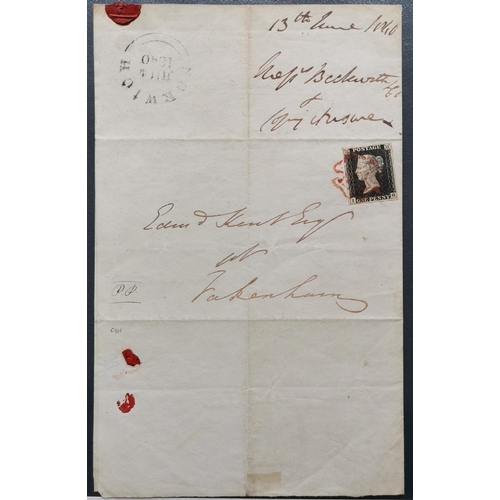 13th June 1840
Messrs Beckwith
&
copy Answer
NORWICH
JU 14
1840
POSTAGE
ONE PENNY
Edmd Kent Esqr
at
Fakenham
P.P